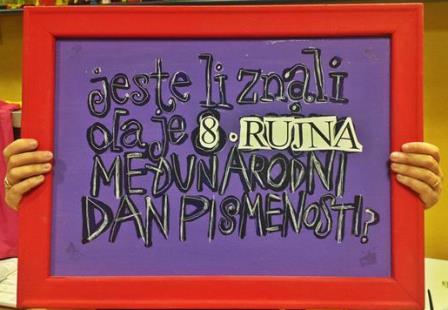 jeste li znali
da je 8. RUJNA
MEĐUNARODNI
DAN PISMENOSTI?